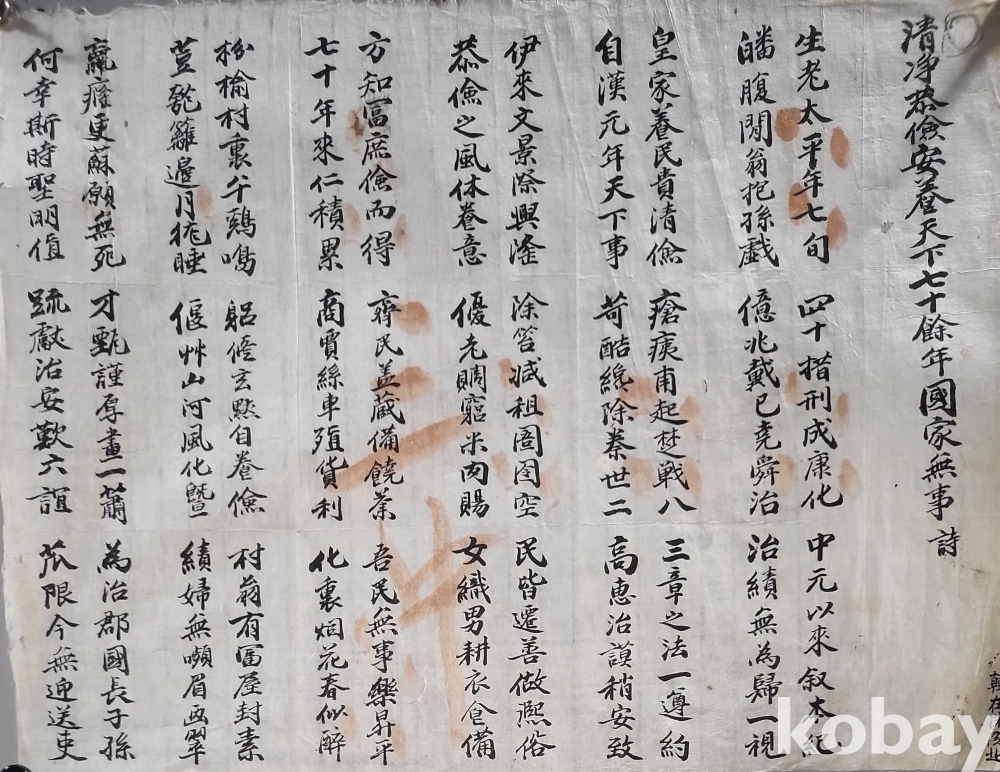 清净恭儉安養天下七十餘年國家無事 詩
生老太平年七旬 四十措刑成康化 中元以來叙本紀
皤腹閒翁抱孫戱 億兆戴已堯舜治 治績無為歸一視
皇家養民貴清儉 瘡痍甫起楚戰八 三章之法一遵約
自漢元年天下事 苛酷纔除秦世二 高惠治謨稍安致
伊來文景際興隆 除笞减租圄囹空 民皆遷善做凞俗
恭儉之風休養意 優老賙窮米肉賜 女織男耕衣食備
方知冨庶儉而得 齊民盖藏備饒 吾民無事樂昇平
七十年來仁積累 商賈絲車殖貨利 化裏烟花春似醉
枌榆村裏午鷄鳴 躬修玄默自養儉 村翁有冨屋封素
荳籬邊月尨睡 偃艸山河風化曁 績婦無嚬眉画翠
羸癃更蘇願無死 才甄謹厚畫一蕭 為治郡國長子孫
何幸斯時聖明值 疏獻治安歎六誼 苽限今無迎送吏
kobay